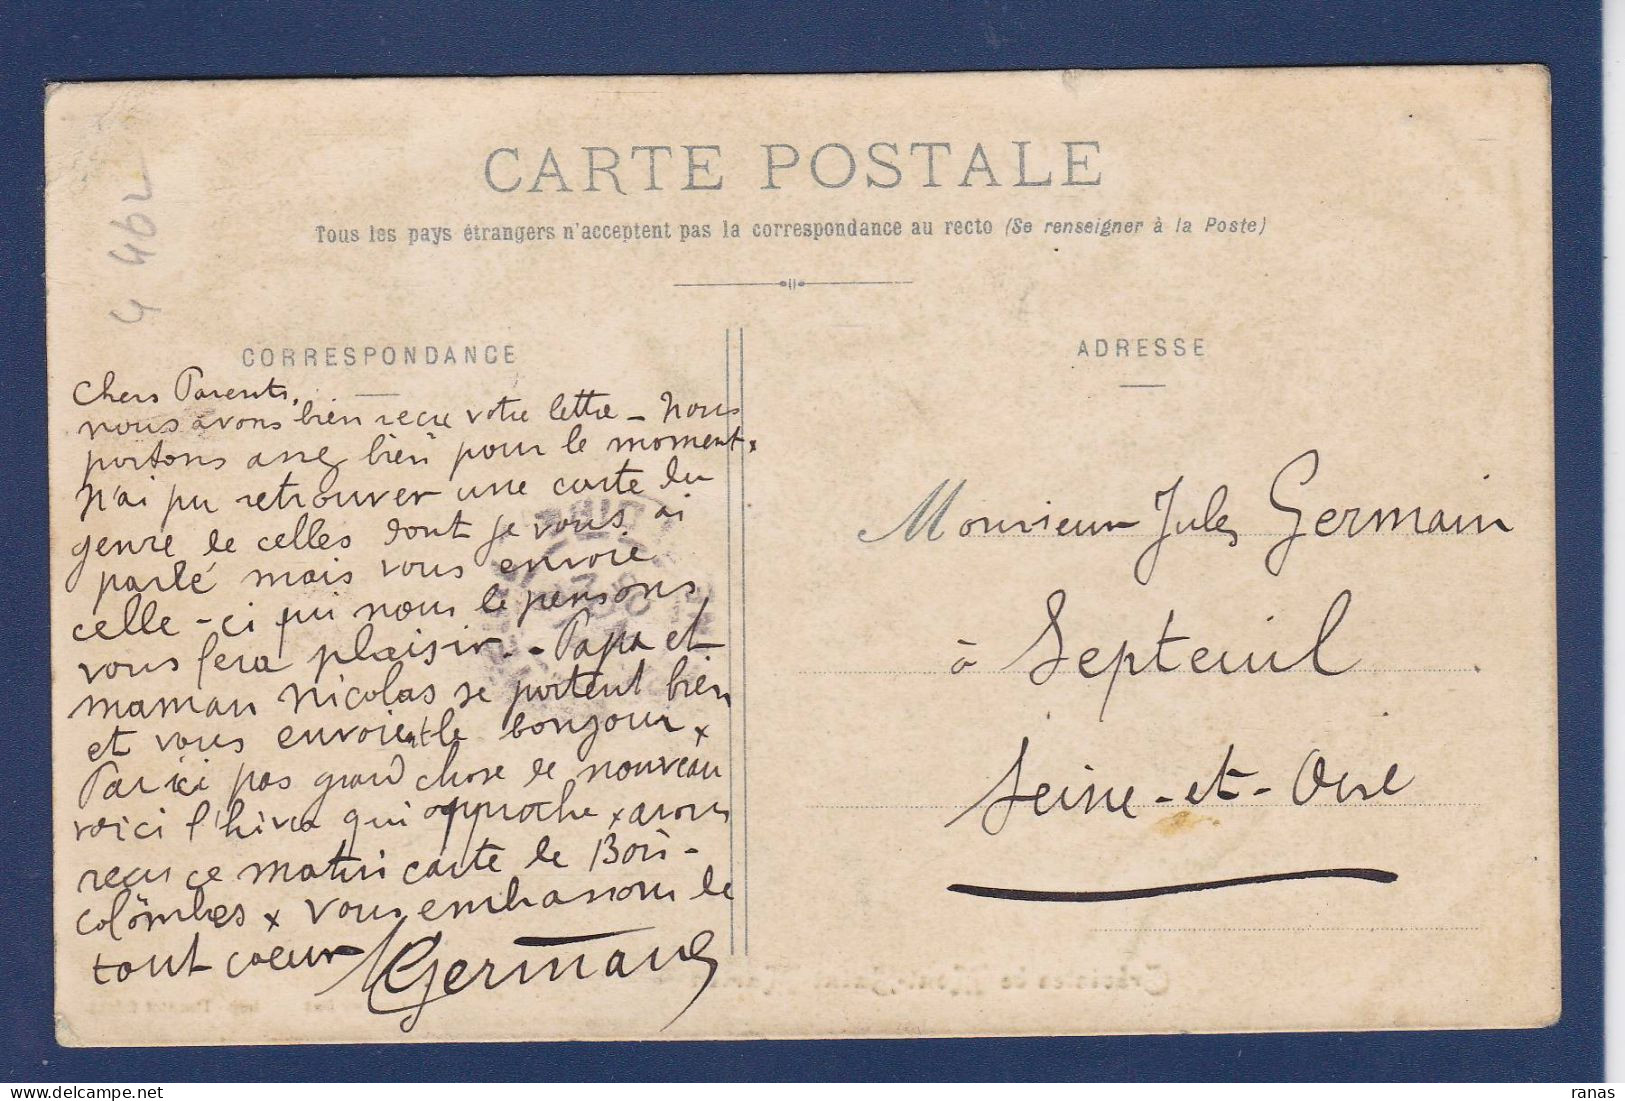 CARTE POSTALE
Tous les pays étrangers n'acceptent pas la correspondance au recto (Se renseigner à la Poste)
4 462
CORRESPONDANCE
Chers Parents,
nous avons bien reçu votre lettre – Nous
portons assez bien pour le moment x
N'ai pu retrouver une carte du
genre de celles dont je vous ai
parlé mais vous envoie
celle-ci qui nous le pensons
vous fera plaisir. - Papa et
maman Nicolas se portent bien
et vous envoient le bonjour x
Par ici pas grand chose de nouveau
voici l'hiver qui approche x avons
reçu ce matin carte de Bois-
colômbes x vous embrassons de
tout coeur
Germain
ADRESSE
Monsieur Jules Germain
à Septeuil
Seine-et-Oise
ranas